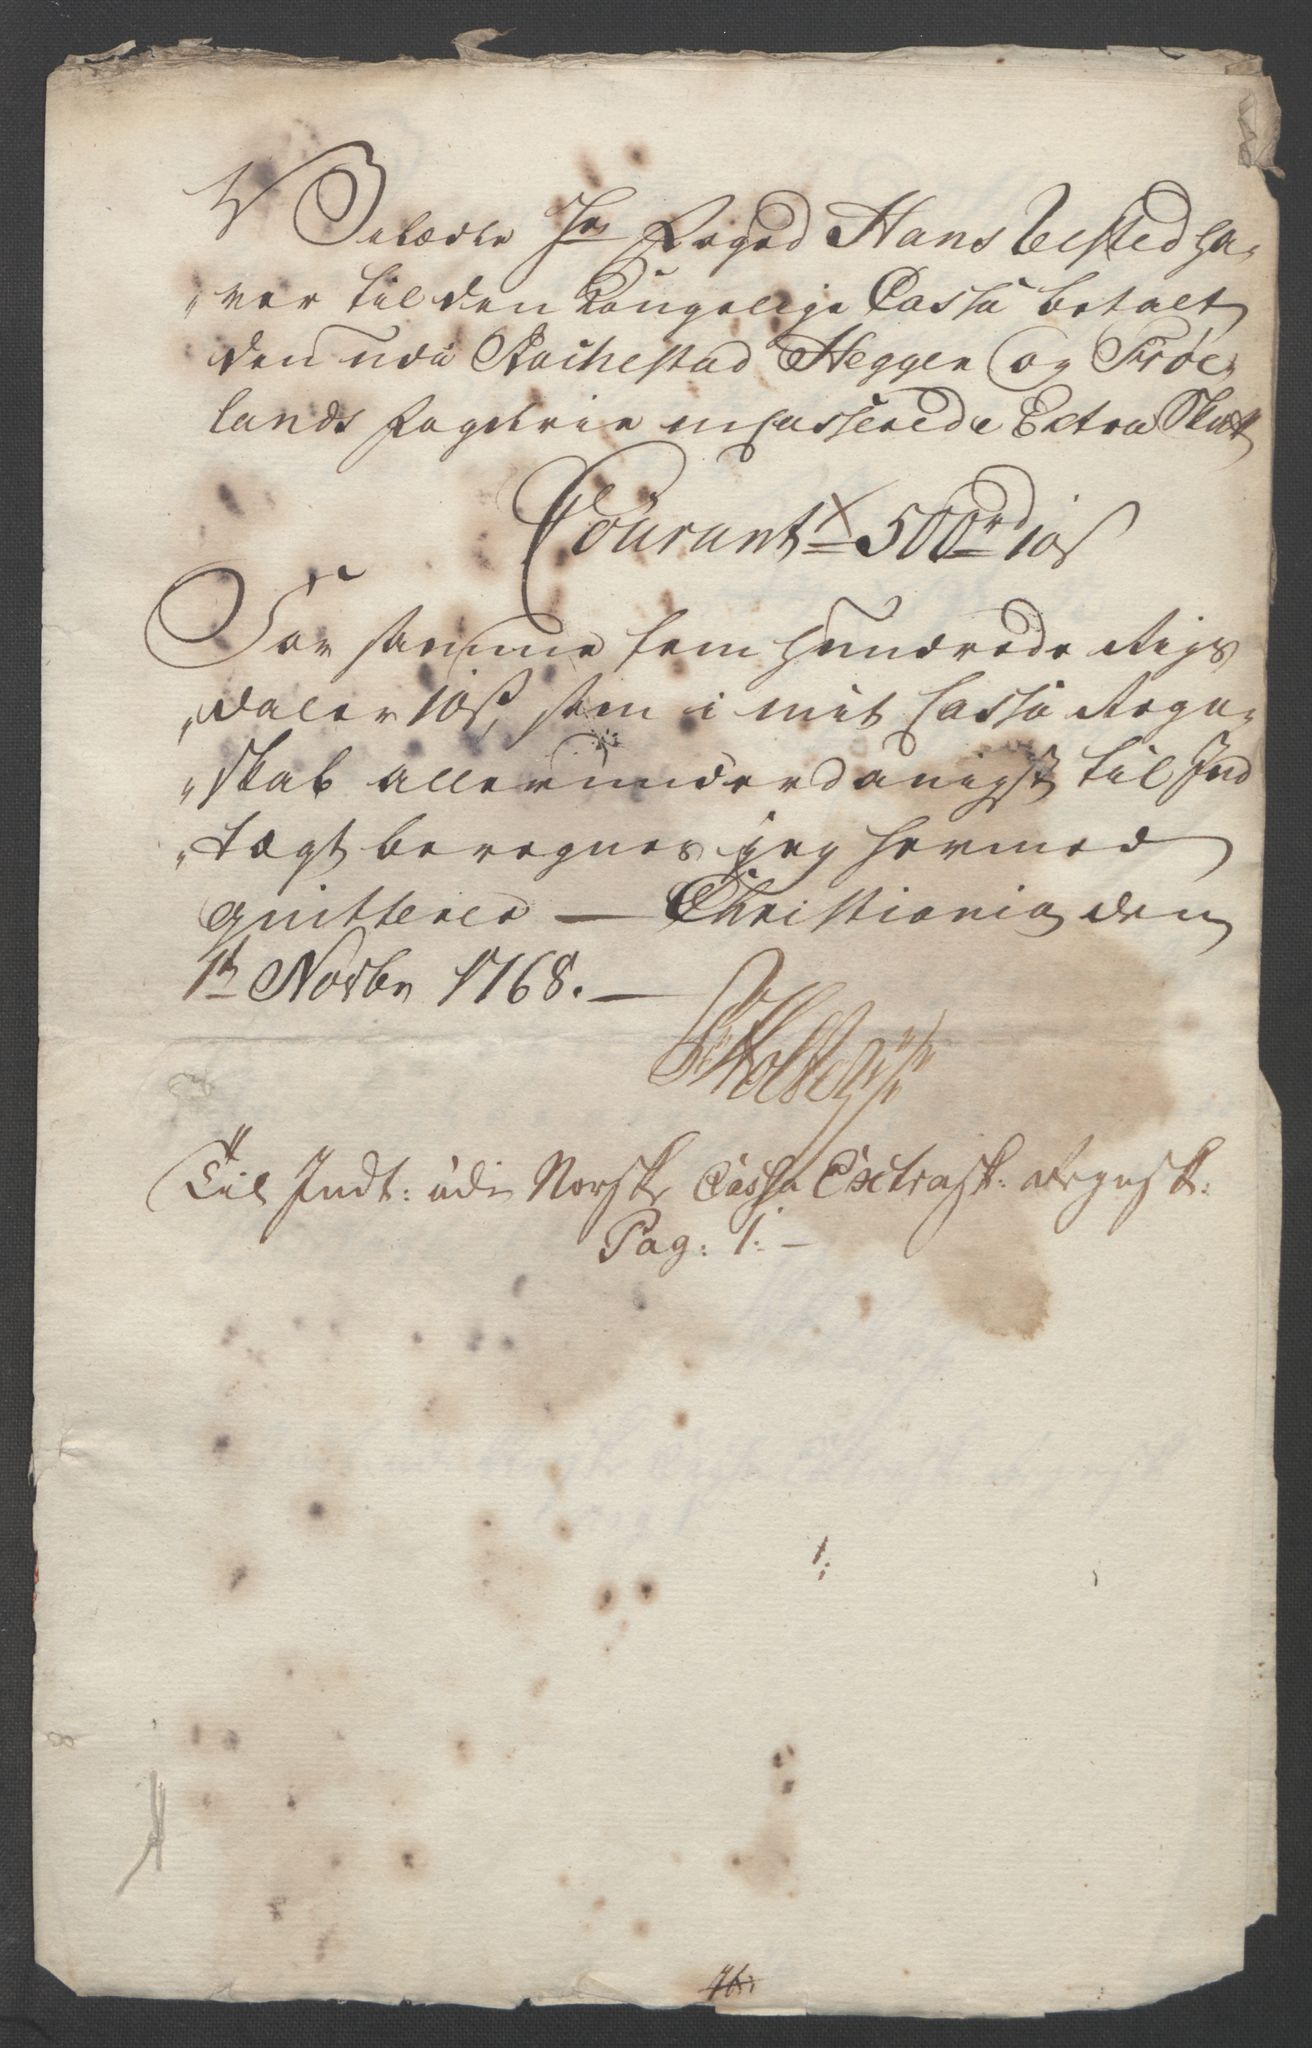 Velædle Hr Foged Hans Vested ha-
"ver til den Kongelige Cassa betalt
den udi Rachestad Heggen og Frøe-
lands Fogderie incasserede Extra Skat
Courant 500 rd 10 s
For samme fem Hundrede Rigs
"daler 10 s, som i mit Cassa Regn-
"skab allerunderdanigst til Ind
"tægt beregnes jeg hermed
quitterer — Christiania den
1t Novbr 1768. —
Holter
Til Indt: udi Norsk Cassa Extrask: Regnsk:
Pag: 1: —
1: